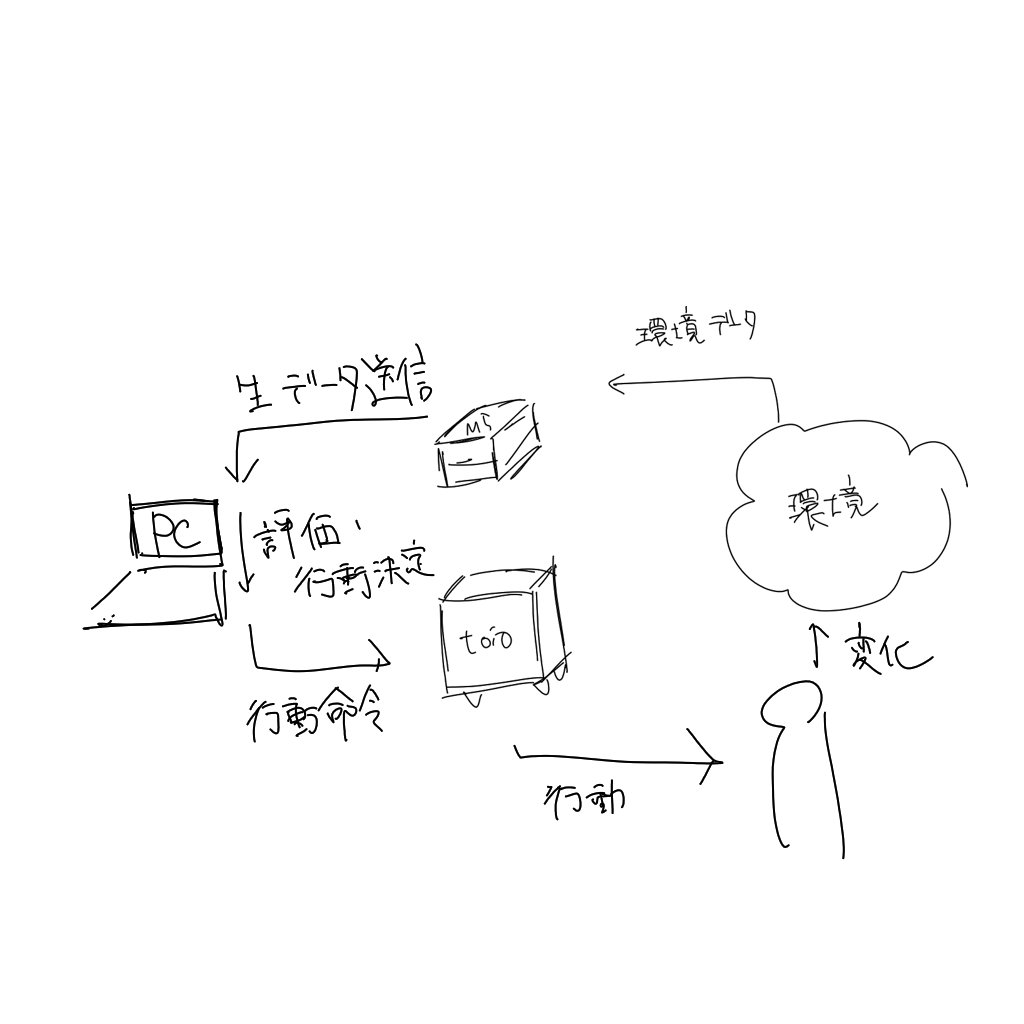 環境データ
生データ送信
M5
環境
PC
評価・
行動決定
toio
変化
行動命令
行動